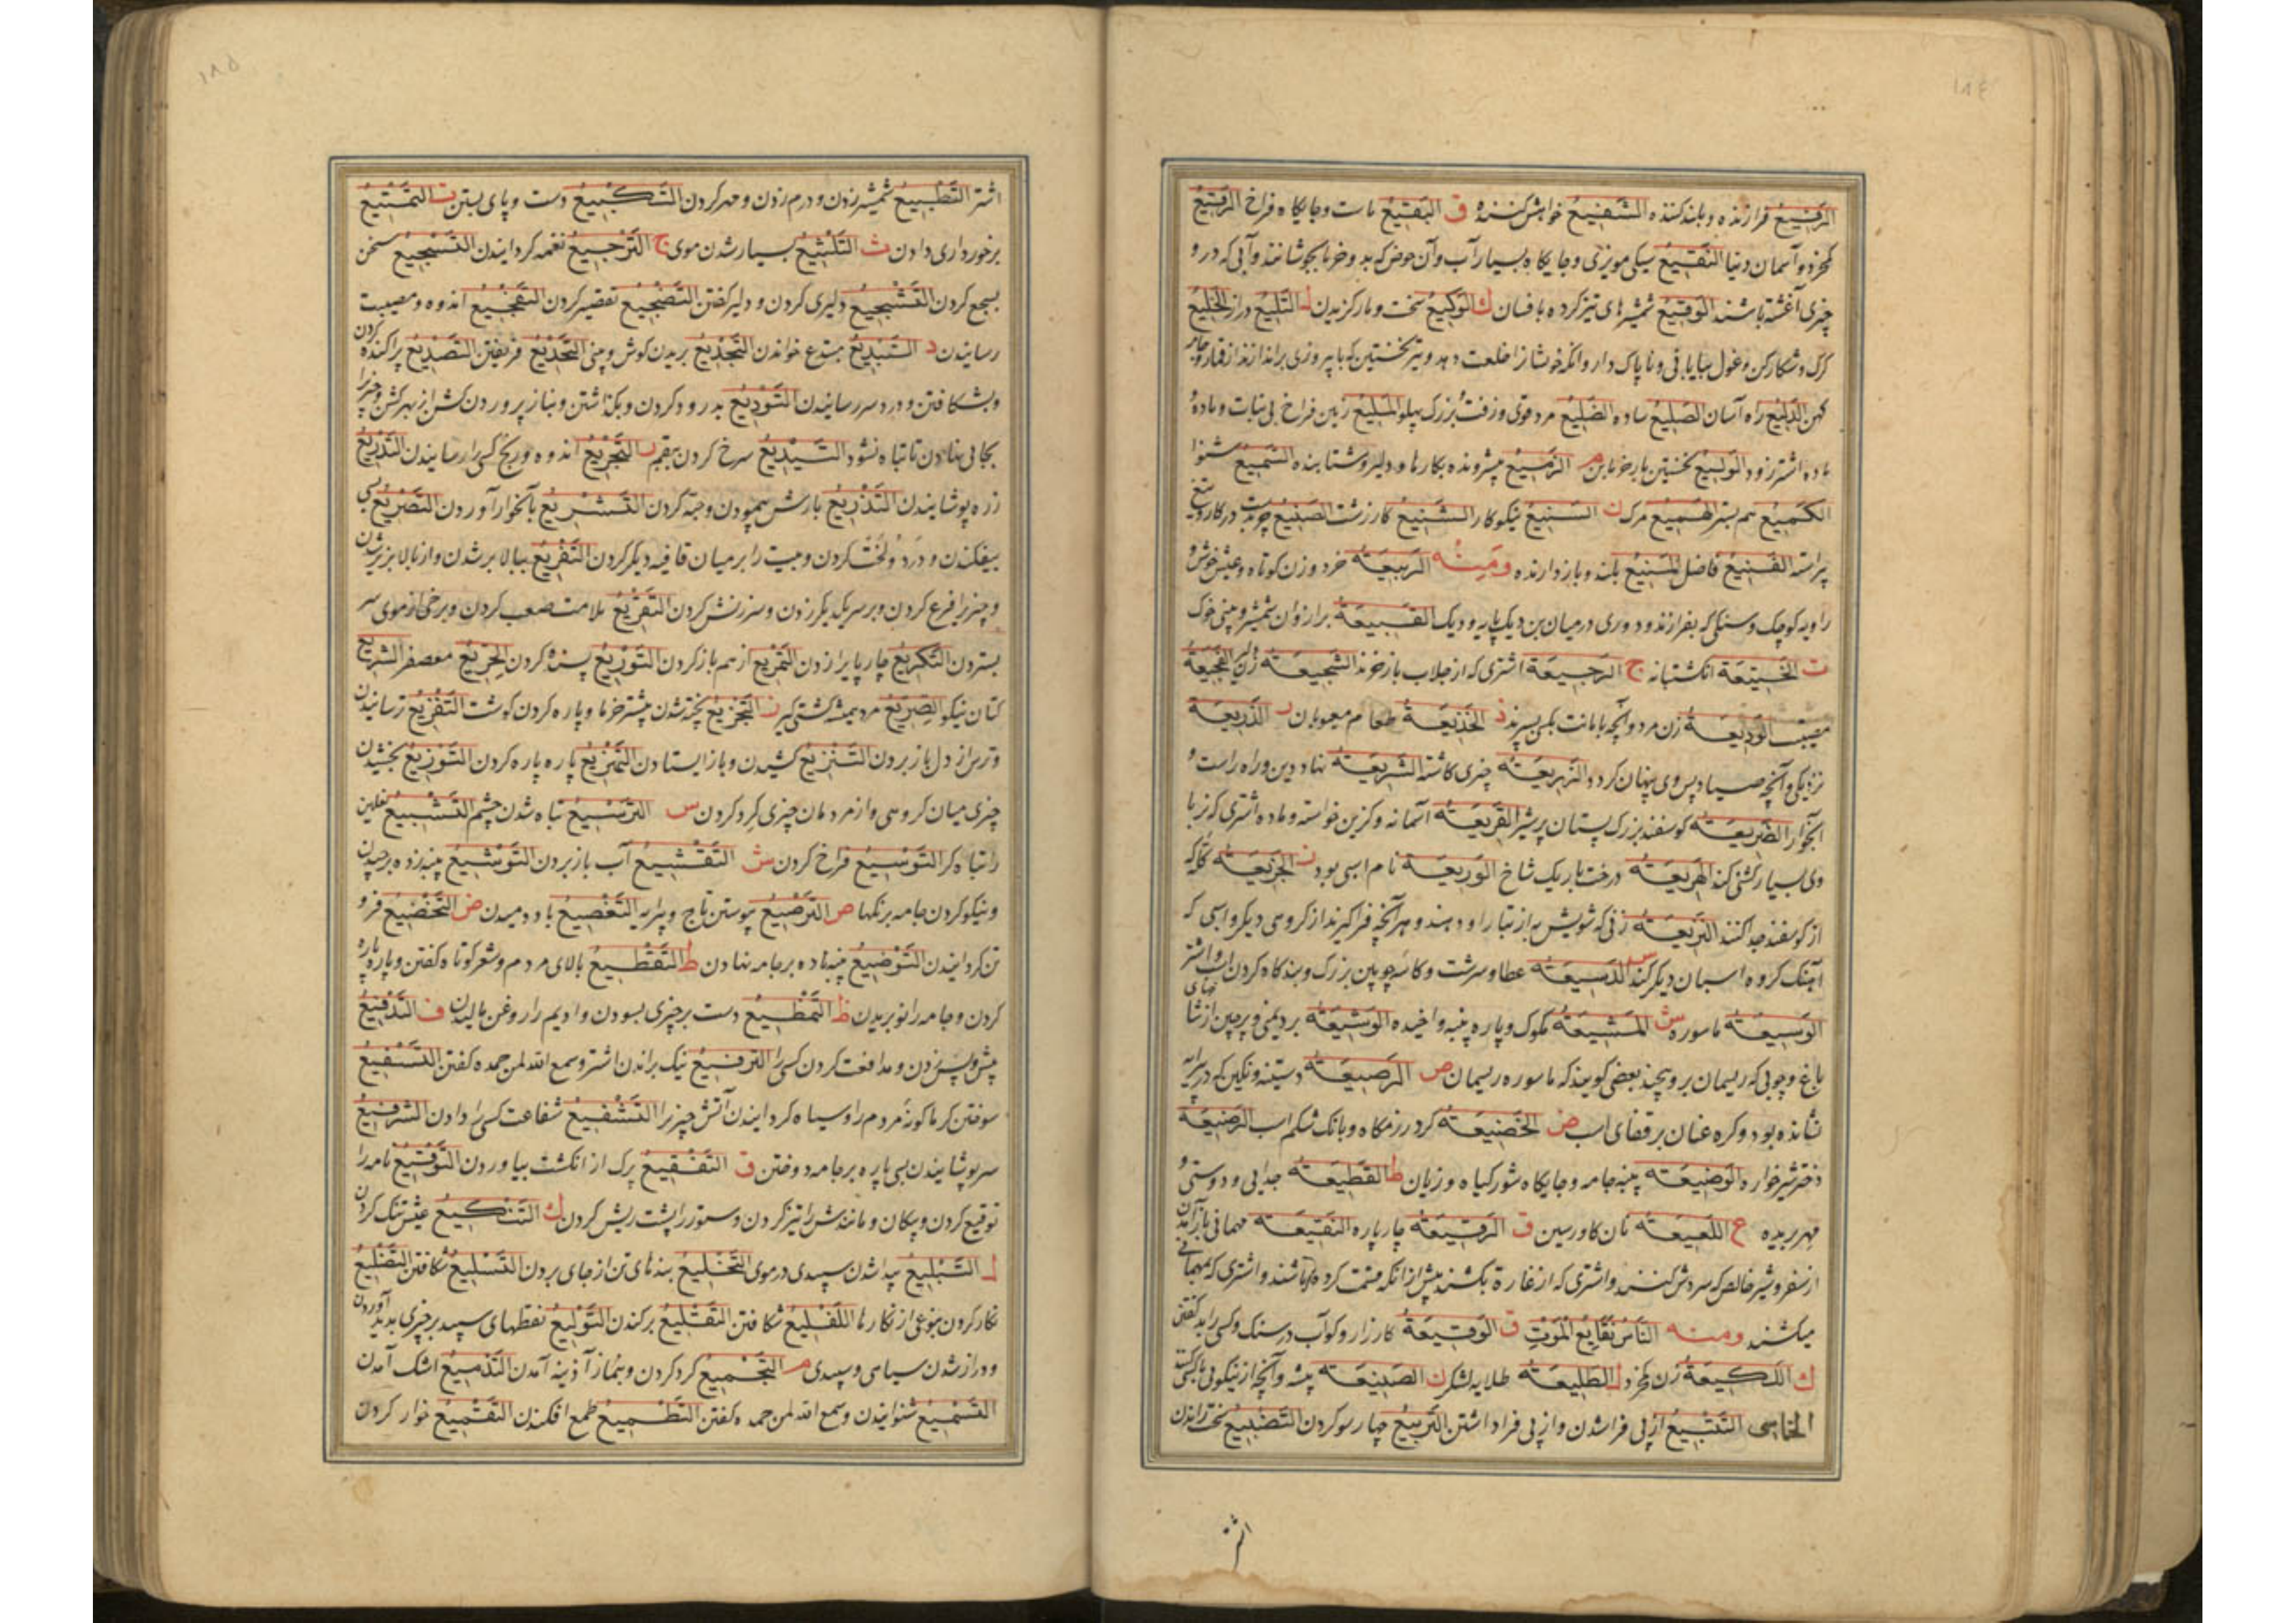 ١٨٤
الرَّفِيعُ فرازنده و بلند کننده الشَّفِيعُ خواهش کننده ق البَقِيعُ مات و جایگاه فراخ الرَّقِيعُ
کم خرد و آسمان دنیا النَّقِيعُ سیکی مویزی و جایگاه بسیار آب و آن حوض که بدو خرما بجوشانند و آبی که درو
چیزی آغشته باشند الوَقِيعُ شمشیرهای تیز کرده بافسان ك الوَكِيعُ سخت و بار کزیدن ل التَّلِيعُ دراز الخَلِيعُ
کرک و شکارکن و غول بیابانی و ناپاک دار و آنکه خویشانرا خلعت دهد و تیر نخستین که با پیروزی براندازند از قمار و جامه
کهن الدَّلِيعُ راه آسان الصَّلِيعُ ساده الضَّلِيعُ مرد قوی و زفت بزرک پهلو المَلِيعُ زمین فراخ بی نبات و ماده
ماده اشتر زود الوَلِيعُ نخستین بار خرمابن م الزَّمِيعُ پیش رونده بکارها و دلیر و شتابنده السَّمِيعُ شنوا
الكَمِيعُ هم بستر الهَمِيعُ مرک ن السَّنِيعُ نیکو کار الشَّنِيعُ کار زشت الصَّنِيعُ چرب دست در کار و تیغ
پیراسته القَنِيعُ فاضل المَنِيعُ بلند و بازدارنده ومنه الرَّبِيعَة خرد و زن کوتاه و عیش خوش و
راویه کوچک و سنکی که بفرازند و دوری در میان بن دیک پایه و دیک القَبِيعَة برازوان شمشیر و بینی خوک
ت الخَتِيعَة انکشتبانه ج الرَّجِيعَة اشتری که از جلاب بازخرند الشَّجِيعَة زن دلیر الفَجِيعَة
مصیبت الوَدِيعَة زن مرد و آنچه بامانت بکسی سپرند ذ الخَذِيعَة طعام معیوبان ر الذَّرِيعَة
نزدیکی و آنچه صیاد پس وی پنهان کردد الزَّرِيعَة چیزی کاشته الشَّرِيعَة نهاد دین و راه راست و
آبخوار الضَّرِيعَة کوسفند بزرک پستان پرشیر القَرِيعَة آسمانه و کزین خواسته و ماده اشتری که نر با
وی بسیار کشنی کند الهَرِيعَة درخت باریک شاخ الوَرِيعَة نام اسبی بود ز الجَزِيعَة کله که
از کوسفند جدا کنند النَّزِيعَة زنی که شویش به از تبار او دهند و هر آنچه فراکیرند از کروهی دیکر و اسبی که
آهنک کروه اسبان دیکر کند س الدَّسِيعَة عطا و سرشت و کاسه چوبین بزرک و بندکاه کردن اسب و اشتر
الوَسِيعَة ماسوره ش المَشِيعَة مکوک و پاره پنبه واخیده الوَشِيعَة برد یمنی و پرچین از شاخهای
باغ و چوبی که ریسمان برو پیچند بعضی کویند که ماسوره ریسمان ص الرَّصِيعَة دستینه و نکین که در پیرایه
نشانده بود و کره عنان بر قفای اسب ض الخَضِيعَة کرد رزمکاه و بانک شکم اسب الرَّضِيعَة
دختر شیرخواره الوَضِيعَة پنبه جامه و جایکاه شور کیاه و زیان ط القَطِيعَة جدایی و دوستی و
مهر بریده ع اللَّعِيعَة نان کاورسین ق الرَّقِيعَة چارپاره النَّقِيعَة مهمانی باز آمدن
از سفر و شیر خالص که سردش کنند و اشتری که از غارة بکشند پیش از آنکه قسمت کرده باشند و اشتری که بمهمانی
میکشند ومنه النَّاسُ نَقَايِعُ المَوْتِ ق الوَقِيعَة کارزار و کوآب در سنک و کسی را بد کفتن
ك اللَّكِيعَة زن کم خرد ل الطَّلِيعَة طلایه لشکر ن الصَّنِيعَة پیشه و آنچه از نیکویی با کسی کنند
الخماسی التَّتْبِيعُ از پی فراشدن و از پی فراداشتن التَّرْبِيعُ چهارسو کردن التَّضْبِيعُ سخت راندن
اشتر
١٨٥
اشتر التَّطْبِيعُ شمشیر زدن و درم زدن و مهر کردن التَّكْبِيعُ دست و پای بستن ت التَّمْتِيعُ
برخورداری دادن ث التَّلْثِيعُ بسیار شدن موی ج التَّرْجِيعُ نغمه کردانیدن التَّسْجِيعُ سخن
بسجع کردن التَّشْجِيعُ دلیری کردن و دلیر کفتن التَّضْجِيعُ تقصیر کردن التَّفْجِيعُ اندوه و مصیبت
رسانیدن د التَّبْدِيعُ مبتدع خواندن التَّجْدِيعُ بریدن کوش و بینی التَّخْدِيعُ فریفتن التَّصْدِيعُ پراکنده کردن
و بشکافتن و درد سر رسانیدن التَّوْدِيعُ بدرود کردن و بکذاشتن و بناز پروردن کشن از بهر کشن و چیز را
بجایی نهادن تا تباه نشود التَّيْدِيعُ سرخ کردن ببقم ر التَّجْرِيعُ اندوه و رنج کسی را رسانیدن التَّدْرِيعُ
زره پوشانیدن التَّذْرِيعُ بارش پیمودن و جبه کردن التَّشْرِيعُ بآبخوار آوردن التَّصْرِيعُ بسی
بیفکندن و درد و لخت کردن و میت را بر میان قافیه دیکر کردن التَّفْرِيعُ ببالا بر شدن و از بالا بزیر شدن
و چیز را فرع کردن و بر سر یکدیکر زدن و سرزنش کردن التَّقْرِيعُ ملامت صعب کردن و برخی از موی سر
بستردن التَّكْرِيعُ چارپا را زدن التَّمْرِيعُ از هم باز کردن التَّوْرِيعُ پسنده کردن الخِرِّيعُ معصفر الشِّرِّيعُ
کتان نیکو الصِّرِّيعُ مرد همیشه کشتی کیر ز التَّجْزِيعُ پخته شدن بیشتر خرما و پاره کردن کوشت التَّفْزِيعُ ترسانیدن
و ترس از دل باز بردن التَّنْزِيعُ کشیدن و باز ایستادن التَّمْزِيعُ پاره پاره کردن التَّوْزِيعُ بخشیدن
چیزی میان کروهی و از مردمان چیزی کرد کردن س التَّرْسِيعُ تباه شدن چشم التَّشْسِيعُ نعلین
را تباه کر التَّوْسِيعُ فراخ کردن ش التَّقْشِيعُ آب باز بردن التَّوْشِيعُ پنبه زده برچیدن
و نیکو کردن جامه برنکها ص التَّرْصِيعُ پیوستن تاج و پیرایه التَّفْصِيعُ باد دمیدن ض التَّخْضِيعُ فرو
تن کردانیدن التَّوْضِيعُ پنبه ناده بر جامه نهادن ط التَّقْطِيعُ بالای مردم و شعر کوتاه کفتن و پاره پاره
کردن و جامه را نو بریدن ظ التَّمْظِيعُ دست بر چیزی بسودن و ادیم را روغن مالیدن ف التَّدْفِيعُ
پیش و پس زدن و مدافعت کردن کسی را التَّرْفِيعُ نیک براندن اشتر و سمع الله لمن حمده کفتن التَّسْفِيعُ
سوختن کرما کونه مردم را و سیاه کردانیدن آتش چیز را التَّشْفِيعُ شفاعت کسی را دادن التَّرْفِيعُ
سر پوشانیدن بسی پاره بر جامه دوختن ق التَّفْقِيعُ پرک از انکشت بیاوردن التَّوْقِيعُ نامه را
توقیع کردن و پیکان و مانندش را تیز کردن و ستور را پشت ریش کردن ك التَّنْكِيعُ عیش تنک کردن
ل التَّبْلِيعُ پیدا شدن سپیدی در موی التَّخْلِيعُ بندهای تن از جای بردن التَّسْلِيعُ شکافتن التَّضْلِيعُ
نکار کردن بنوعی از نکارها التَّفْلِيعُ شکافتن التَّقْلِيعُ برکندن التَّوْلِيعُ نقطهای سپید بر چیزی پدید آوردن
و دراز شدن سیاهی و سپیدی م التَّجْمِيعُ کرد کردن و بنماز آذینه آمدن التَّدْمِيعُ اشک آمدن
التَّسْمِيعُ شنوانیدن و سمع الله لمن حمده کفتن التَّطْمِيعُ طمع افکندن التَّقْمِيعُ خوار کردن